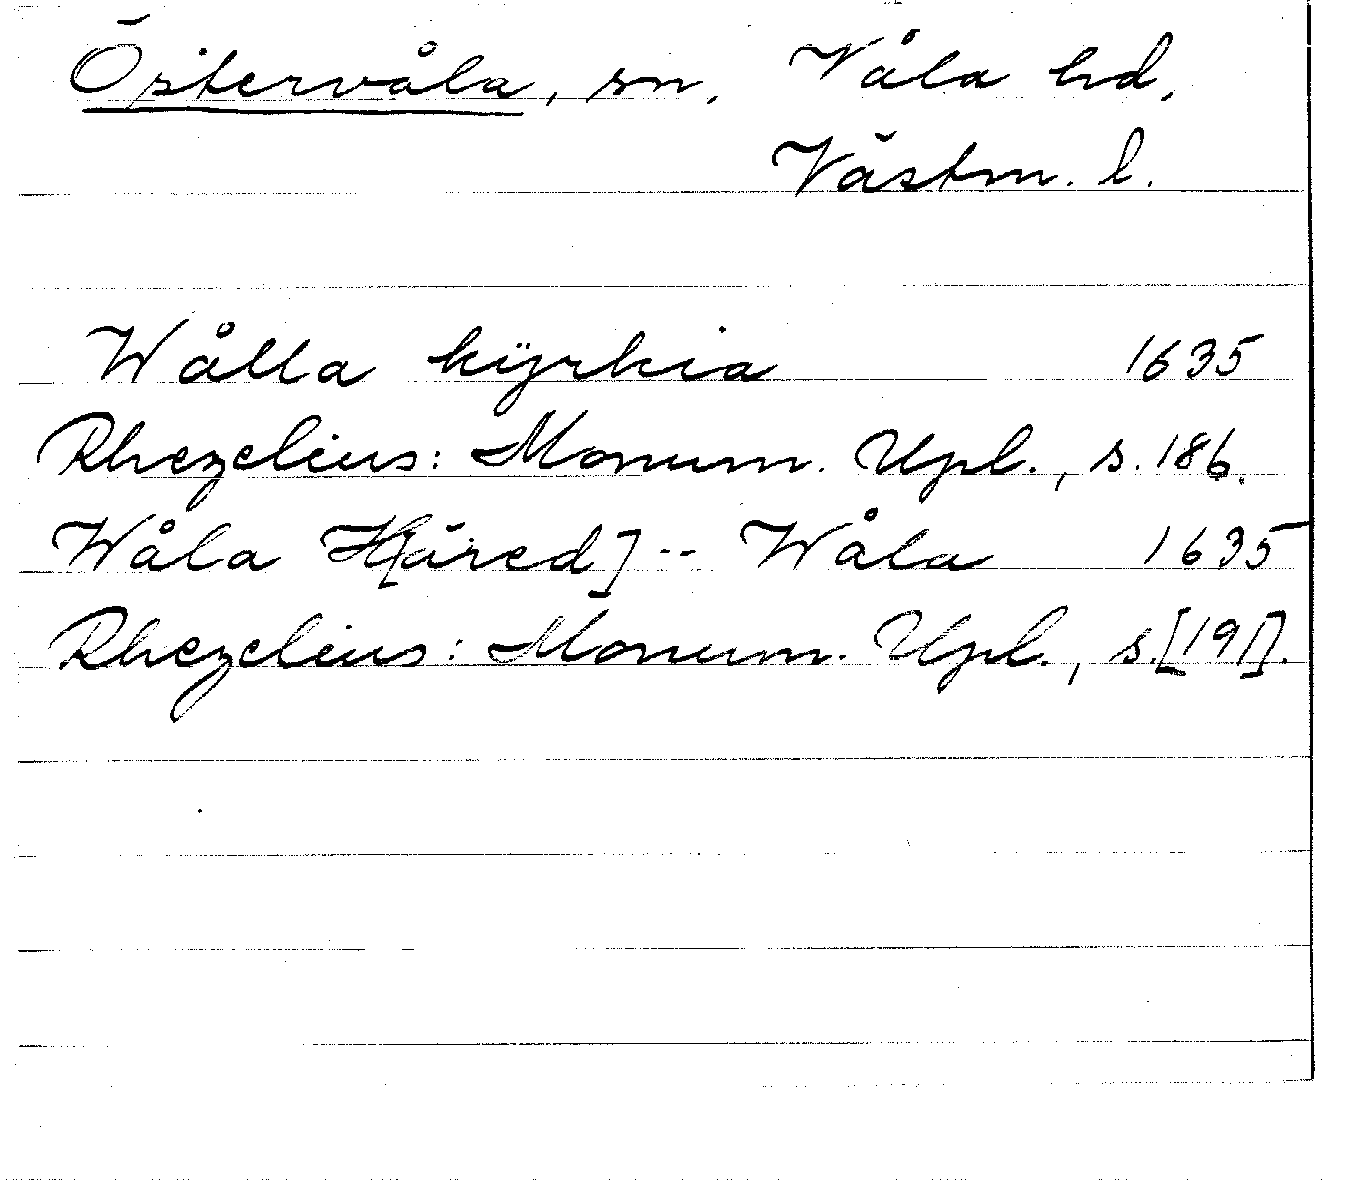 Östervåla, sn, Våla hd,
Västm. l.
Wålla kÿrkia 1635
Rhezelius: Monum. Upl., s. 186.
Wåla H[äred] -- Wåla 1635
Rhezelius: Monum. Upl., s.[191].